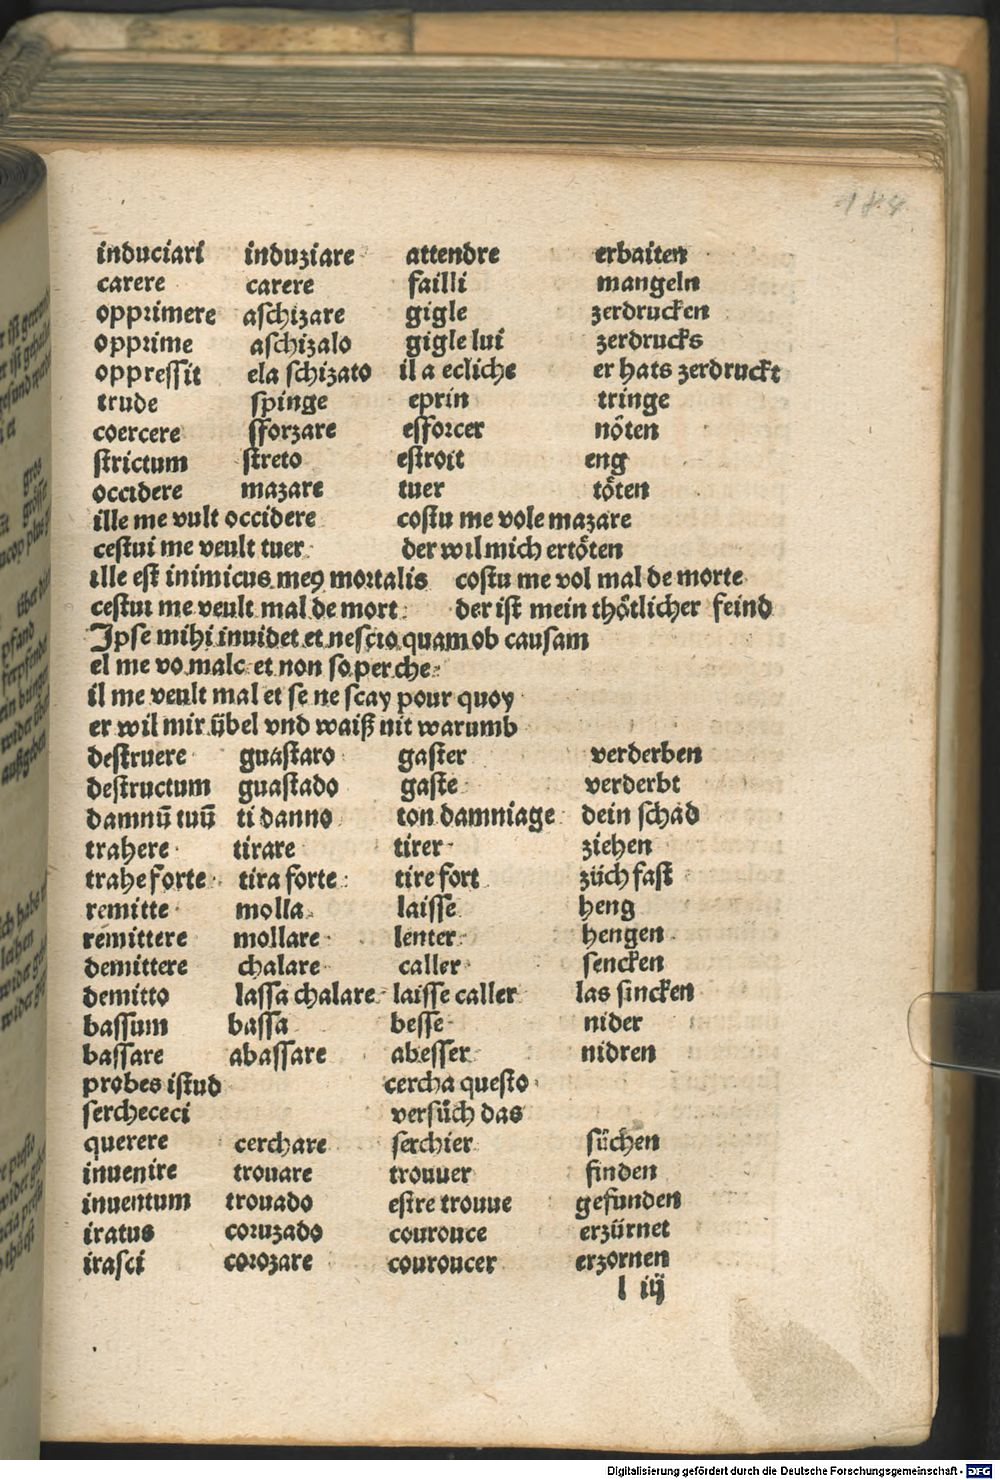 184
induciari induziare attendre erbaiten
carere carere failli mangeln
opprimere aschizare gigle zerdrucken
opprime aschizalo gigle lui zerdrucks
oppressit ela schizato il a ecliche er hats zerdruckt
trude spinge eprin tringe
coercere sforzare efforcer nöten
strictum streto estroit eng
occidere mazare tuer töten
ille me vult occidere costu me vole mazare
cestui me veult tuer der wil mich ertöten
ille est inimicus meꝰ mortalis costu me vol mal de morte
cestui me veult mal de mort der ist mein thötlicher feind
Ipse mihi inuidet et nescio quam ob causam
el me vo male et non so per che
il me veult mal et se ne scay pour quoy
er wil mir übel vnd waiß nit warumb
destruere guastaro gaster verderben
destructum guastado gaste verderbt
damnū tuū ti danno ton damniage dein schad
trahere tirare tirer ziehen
trahe forte tira forte tire fort züch fast
remitte molla laisse heng
remittere mollare lenter hengen
demittere chalare caller sencken
demitto lassa chalare laisse caller las sincken
bassum bassa besse nider
bassare abassare abesser nidren
probes istud cercha questo
serchececi versüch das
querere cerchare serchier süchen
inuenire trouare trouuer finden
inuentum trouado estre trouue gefunden
iratus coruzado courouce erzürnet
irasci corozare couroucer erzornen
l iij
Digitalisierung gefördert durch die Deutsche Forschungsgemeinschaft - DFG